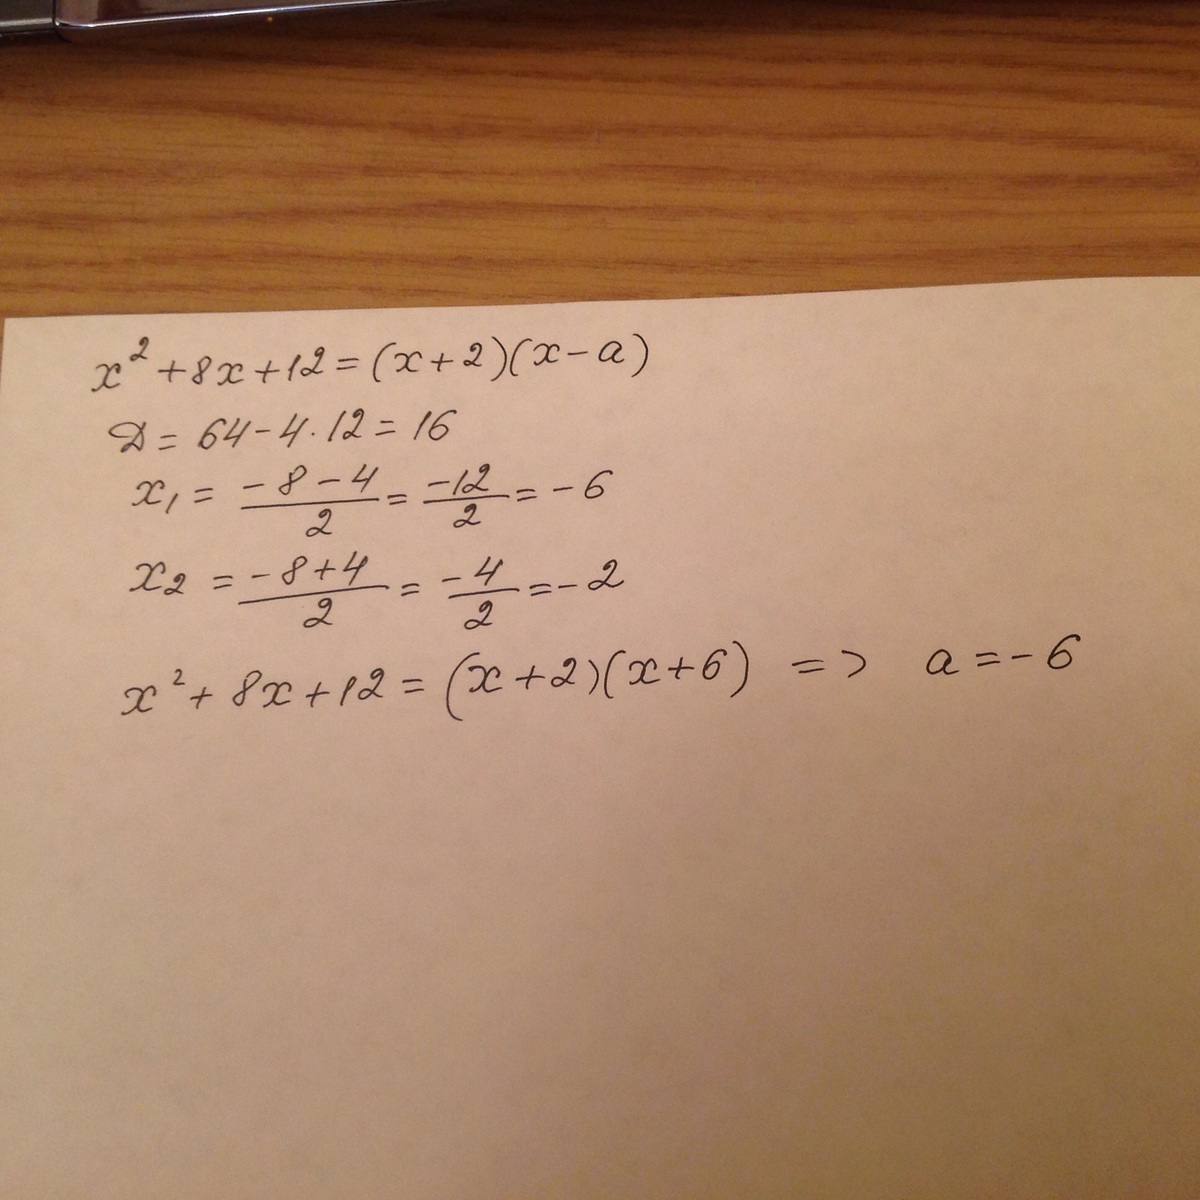 x² + 8x + 12 = (x + 2)(x - a)
D = 64 - 4 · 12 = 16
x₁ = (-8 - 4)/2 = -12/2 = -6
x₂ = (-8 + 4)/2 = -4/2 = -2
x² + 8x + 12 = (x + 2)(x + 6) => a = -6